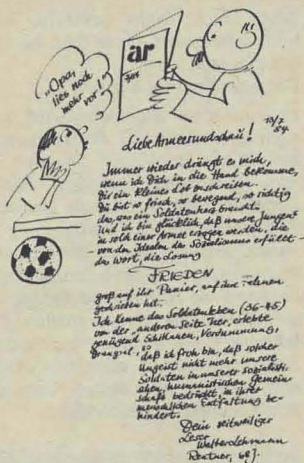 "Opa,
lies noch
mehr vor!"
ar
7/84
13/7
84.
Liebe Armeerundschau!
Immer wieder drängt es mich,
wenn ich Dich in die Hand bekomme,
Dir ein kleines Lob zu schreiben.
Du bist so frisch, so bewegend, so richtig
das, was ein Soldatenherz braucht.
Und ich bin glücklich, daß unsere Jungens
in solch einer Armee erzogen werden, die
von den Idealen des Sozialismus erfüllt
das Wort, die Losung
FRIEDEN
groß auf ihr Panier, auf ihre Fahnen
geschrieben hat.
Ich kenne das Soldatenleben (36-45)
von der "anderen Seite" her, erlebte
genügend Schikanen, Verdummung,
Drangsal, so
daß ich froh bin, daß solcher
Ungeist nicht mehr unsere
Soldaten in unserer sozialisti-
schen, humanistischen Gemein-
schaft bedrückt, in ihrer
menschlichen Entfaltung be-
hindert.
Dein zeitweiliger
Leser
Walter Lehmann
Rentner, 68 J.